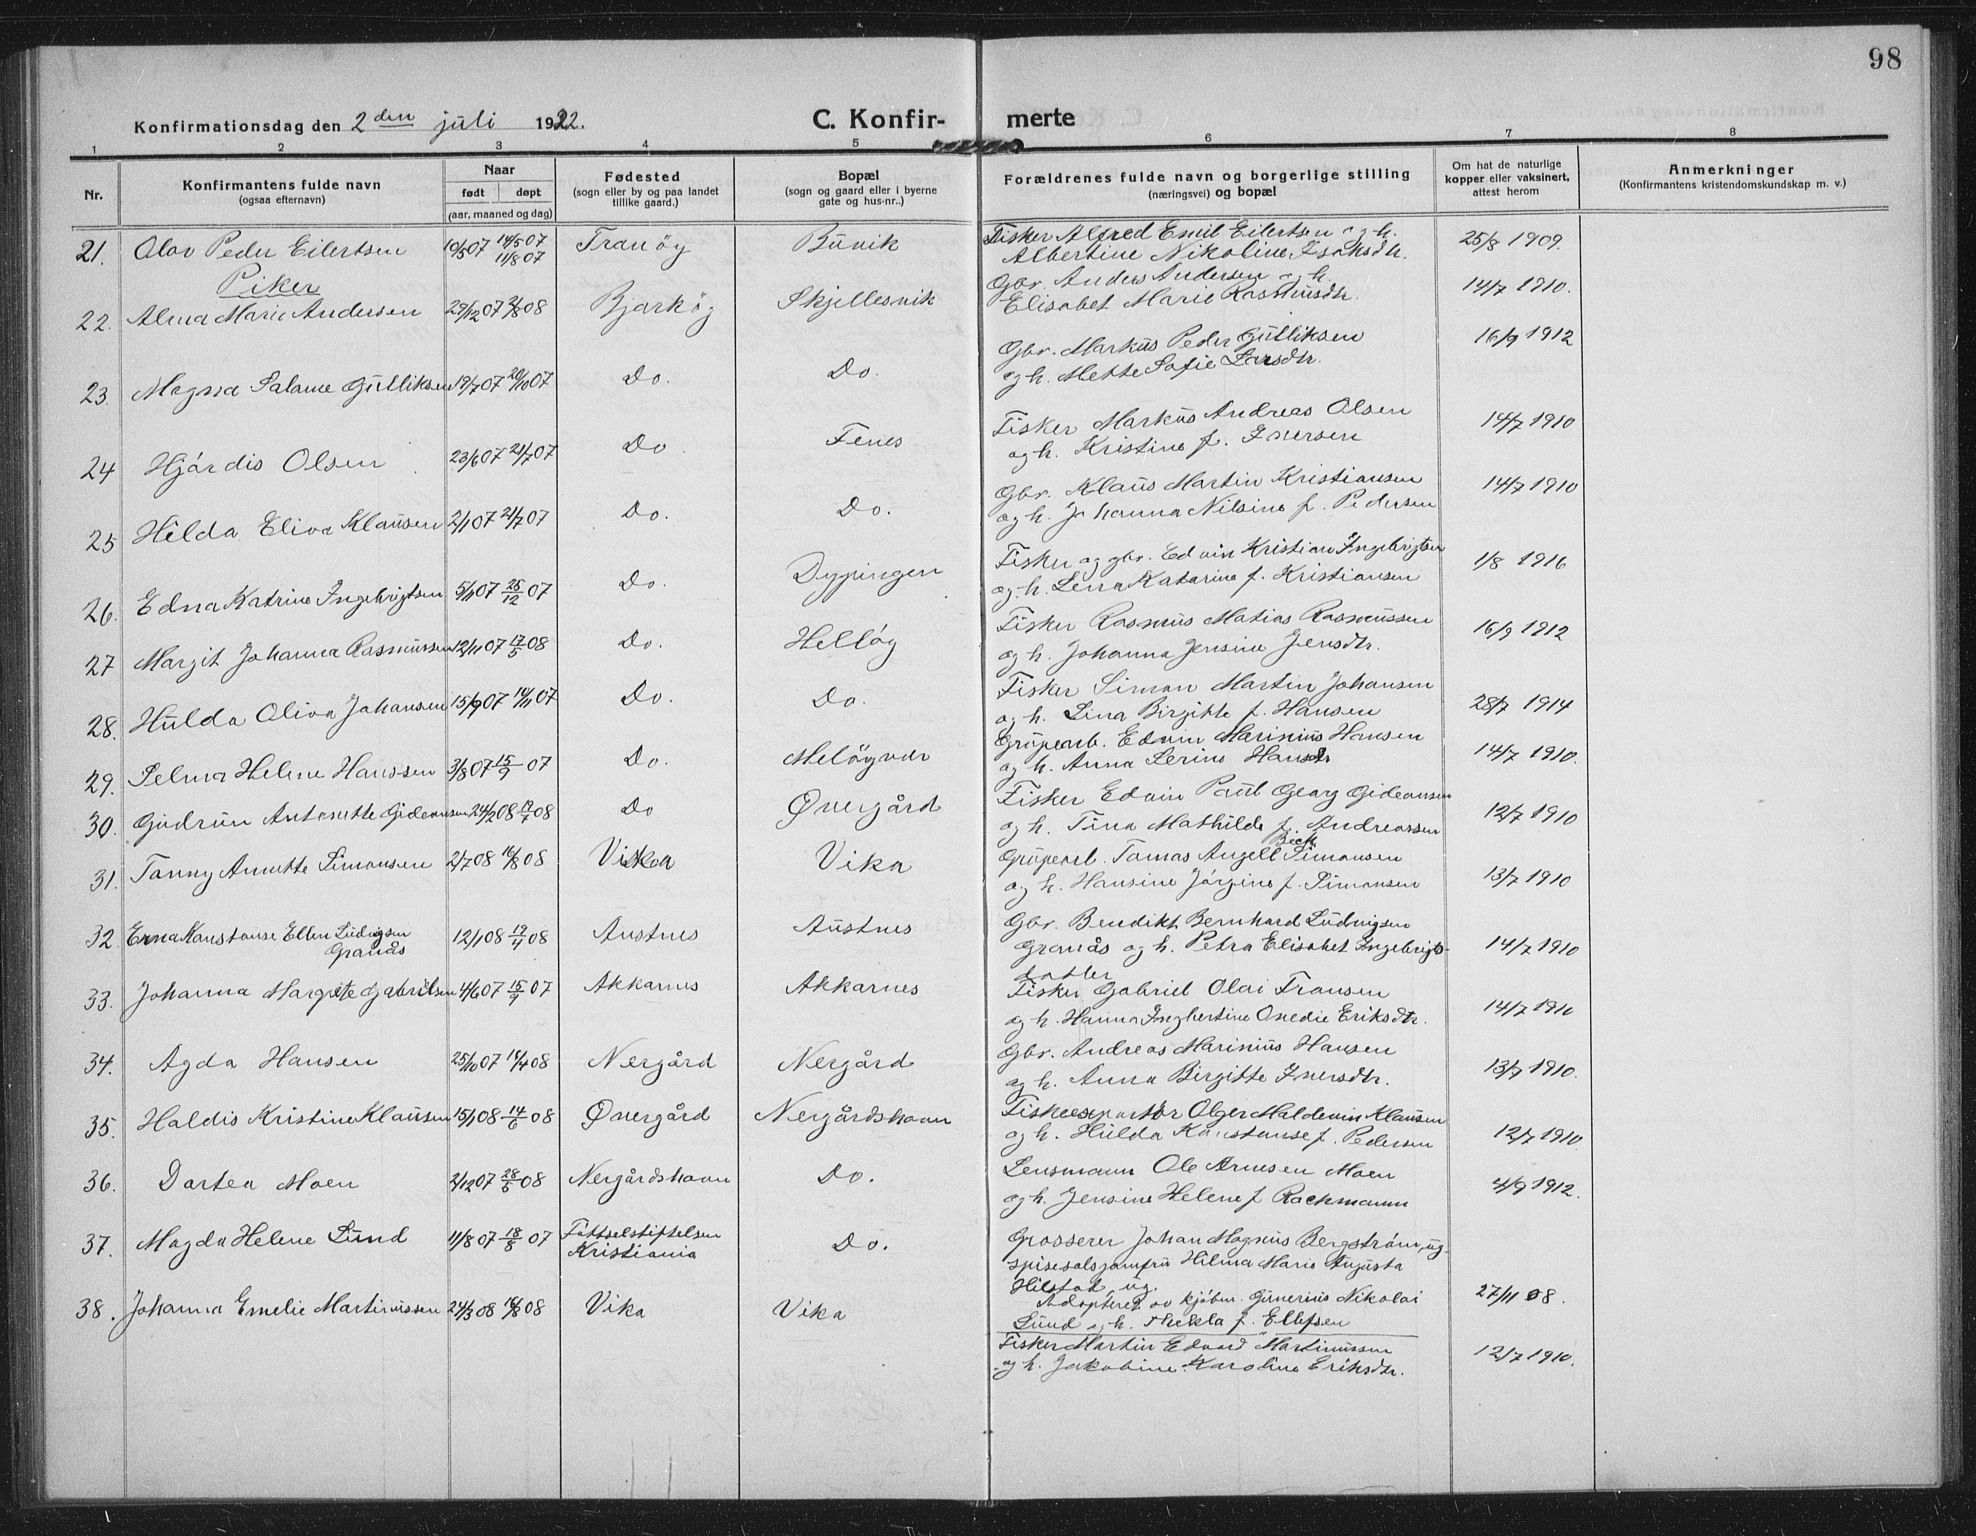 98
Konfirmationsdag den 2den juli 1922.
C. Konfir- merte
1 2 3 4 5 6 7 8
Nr.
Konfirmantens fulde navn
(ogsaa efternavn)
Naar
født døpt
(aar, maaned og dag)
Fødested
(sogn eller by og paa landet
tillike gaard.)
Bopæl
(sogn og gaard eller i byerne
gate og hus-nr.)
Forældrenes fulde navn og borgerlige stilling
(næringsvei) og bopæl
Om hat de naturlige
kopper eller vaksinert,
attest herom
Anmerkninger
(Konfirmantens kristendomskundskap m. v.)
21. Olav Peder Eilertsen 19/5 07 14/5 07 11/8 07 Tranöy Büvik Fisker Alfred Emil Eilertsen og h. 25/8 1909.
Albertine Nikoline Isaksdtr.
Piker
22. Alma Marie Andersen 29/12 07 2/8 08 Bjarköy Skjellesvik Gbr. Anders Andersen og h. 14/7 1910.
Elisabet Marie Rasmüsdtr.
23. Magna Salame Gülliksen 19/7 07 20/10 07 Do. Do. Gbr. Marküs Peder Gülliksen 16/9 1912
og h. Mette Sofie Larsdtr.
24 Hjördis Olsen 23/6 07 21/7 07 Do Fenes Fisker Marküs Andreas Olsen 14/7 1910
og h. Kristine f. Iversen
25 Hilda Eliva Klaüsen 2/1 07 21/7 07 Do. Do. Gbr. Klaüs Martin Kristiansen 14/7 1910
og h. Johanna Nilsine f. Pedersen
26. Edna Katrine Ingebrigtsen 5/11 07 25/12 07 Do. Dypingen Fisker og gbr. Edvin Kristian Ingebrigtsen 1/8 1916
og h. Lena Katarine f. Kristiansen
27 Margit Johanna Rasmüssen 12/11 07 17/5 08 Do. Hellöy Fisker Rasmüs Matias Rasmüssen 16/9 1912
og h. Johanna Jensine Jensdtr.
28. Hülda Oliva Johansen 15/9 07 10/11 07 Do. Do. Fisker Simon Martin Johansen 28/7 1914
og h. Lina Birgitte f. Hansen
29. Selma Helene Hanssen 3/8 07 15/9 07 Do. Melöyvær Grüpearb. Edvin Marinius Hansen 14/7 1910.
og h. Anna Serine Hansdtr
30. Güdrün Antonette Gideonsen 24/2 08 19/7 08 Do Övergård Fisker Edvin Paül Georg Gideonsen 12/7 1910
og h. Tina Mathilde f. Andreassen
31. Fanny Annette Simonsen 2/7 08 16/8 08 Vika Vika Grüpearb. Tomas Angell Beck Simonsen 13/7 1910
og h. Hansine Jörgine f. Simonsen
32. Erna Konstanse Ellen Lüdvigsen 12/1 08 17/4 08 Austnes Aüstnes Gbr. Benedikt Bernhard Lüdvigsen
Granås Granås og h. Petra Elisabet Ingebrigts- 14/7 1910
datter
33. Johanna Margrete Gabrilsen 4/6 07 15/9 07 Akkarnes Akkarnes Fisker Gabriel Olai Fransen 14/7 1910
og h. Hanna Ingbertine Onedie Eriksdtr.
34. Agda Hansen 25/10 07 19/4 08 Nergård Nergård Gbr. Andreas Marinius Hansen 13/7 1910.
og h. Anna Birgitte Iversdtr.
35. Haldis Kristine Klaüsen 15/1 08 14/6 08 Övergård Nergårdshavn Fiskeexportör Olger Haldevin Klaüsen
og h. Hülda Konstanse f. Pedersen 12/7 1910
36. Dortea Moen 2/12 07 28/5 08 Nergårdshavn Do. Lensmann Ole Arnesen Moen 4/9 1912.
og h. Jensine Helene f. Rachmann
37. Magda Helene Lünd 11/8 07 18/8 07 Födselstiftelsen Do. Grosserer Johan Magnüs Bergström, ug-
Kristiania
spisesalsjomfrü Hilma Marie Augusta
Hilstad, ug.
Adopteret av kjöbm. Günerius Nikolai 27/11 08.
Lünd og h. Thekla f. Ellefsen
38. Johanna Emelie Martinüssen 24/3 08 16/8 08 Vika Vika
Fisker Martin Edvard Martinüssen 12/7 1910.
og h. Jakobine Karoline Eriksdtr.